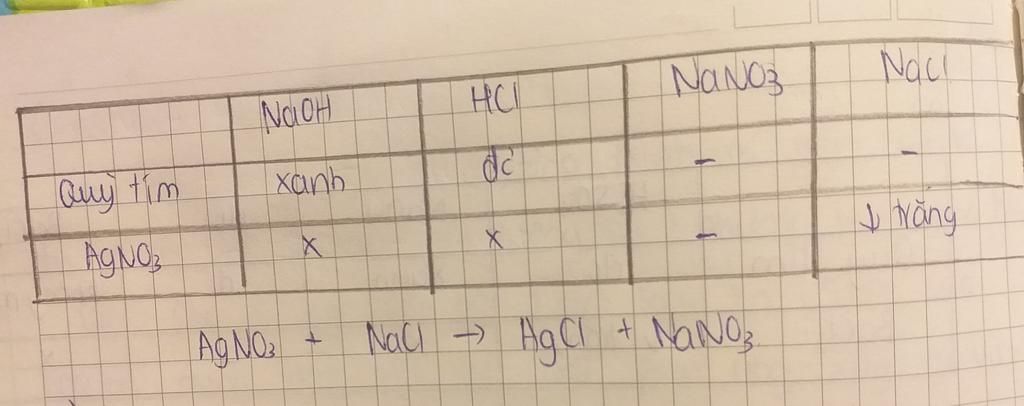 NaOH HCl NaNO₃ NaCl
Quỳ tím xanh đỏ - -
AgNO₃ x x - ↓ trắng
AgNO₃ + NaCl → AgCl + NaNO₃